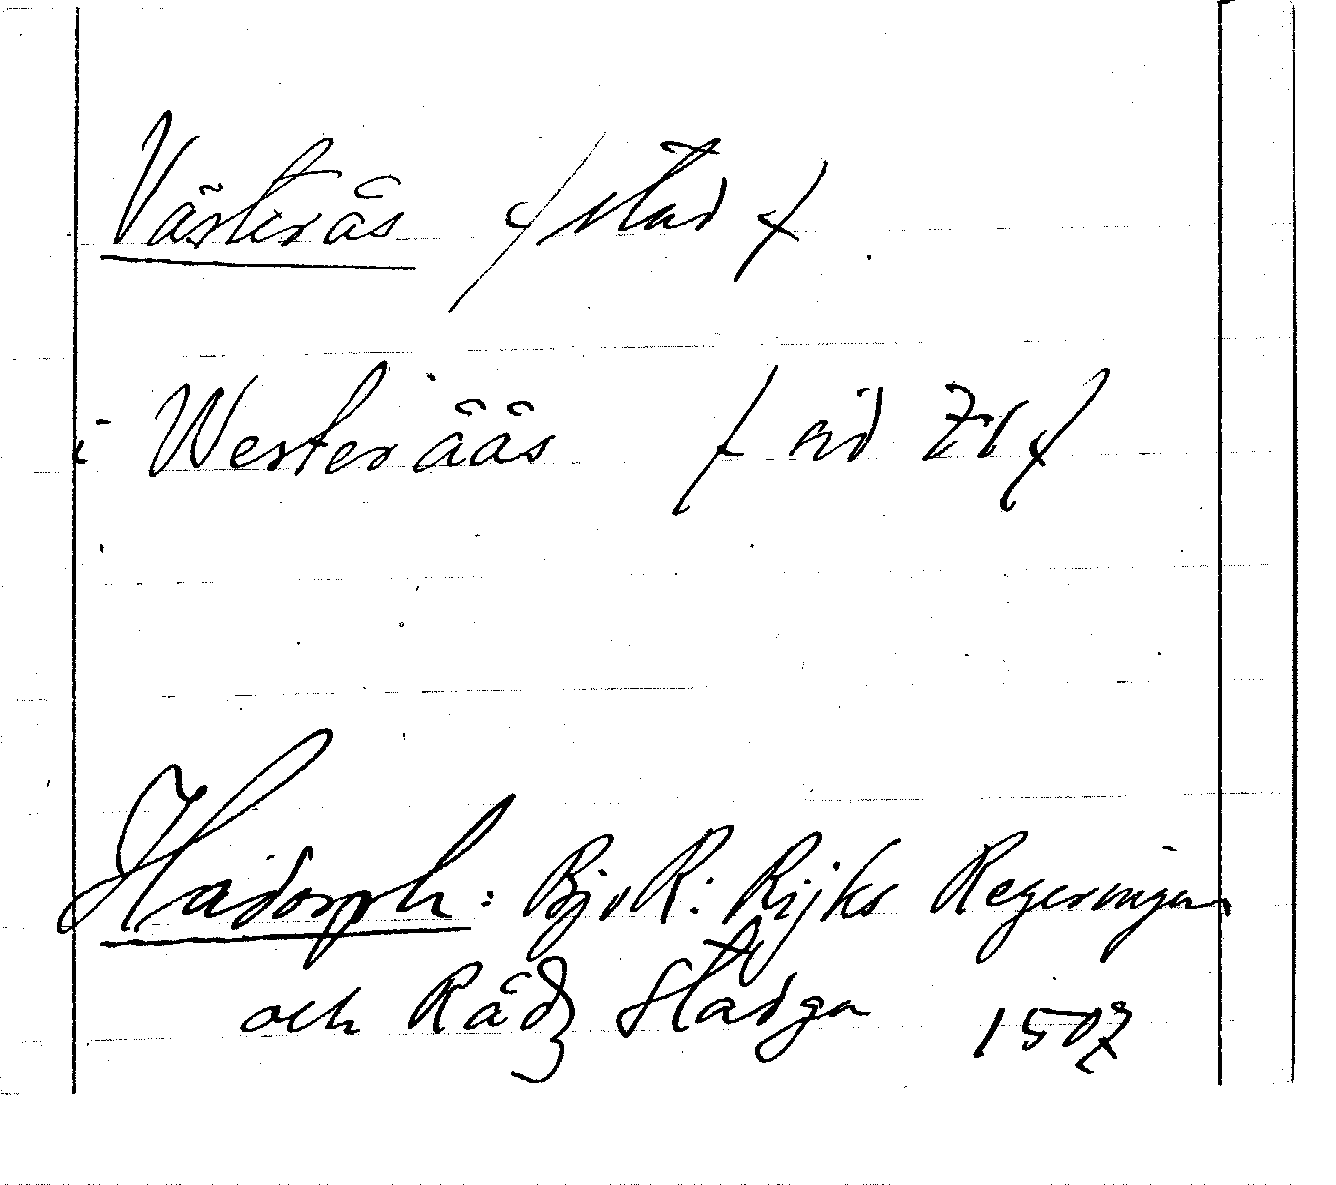 Västerås /: stad :/
i Westeråås /: sid 71 :/
Hadorph: BjxR: Rijks Regeringen
och Rådz Stadga 1507